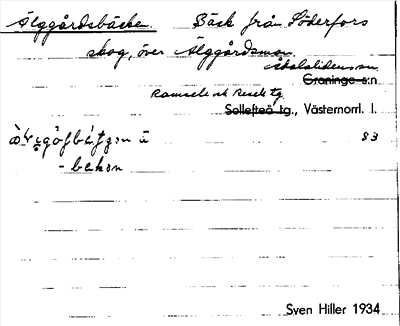 Älggårdsbäcken Bäck från Söderfors
skog, över Älggårdsmon
Ådalsliden sn
Graninge s:n
Ramsele och Resele tg
Sollefteå tg., Västernorrl. l.
83
- bekən
Sven Hiller 1934